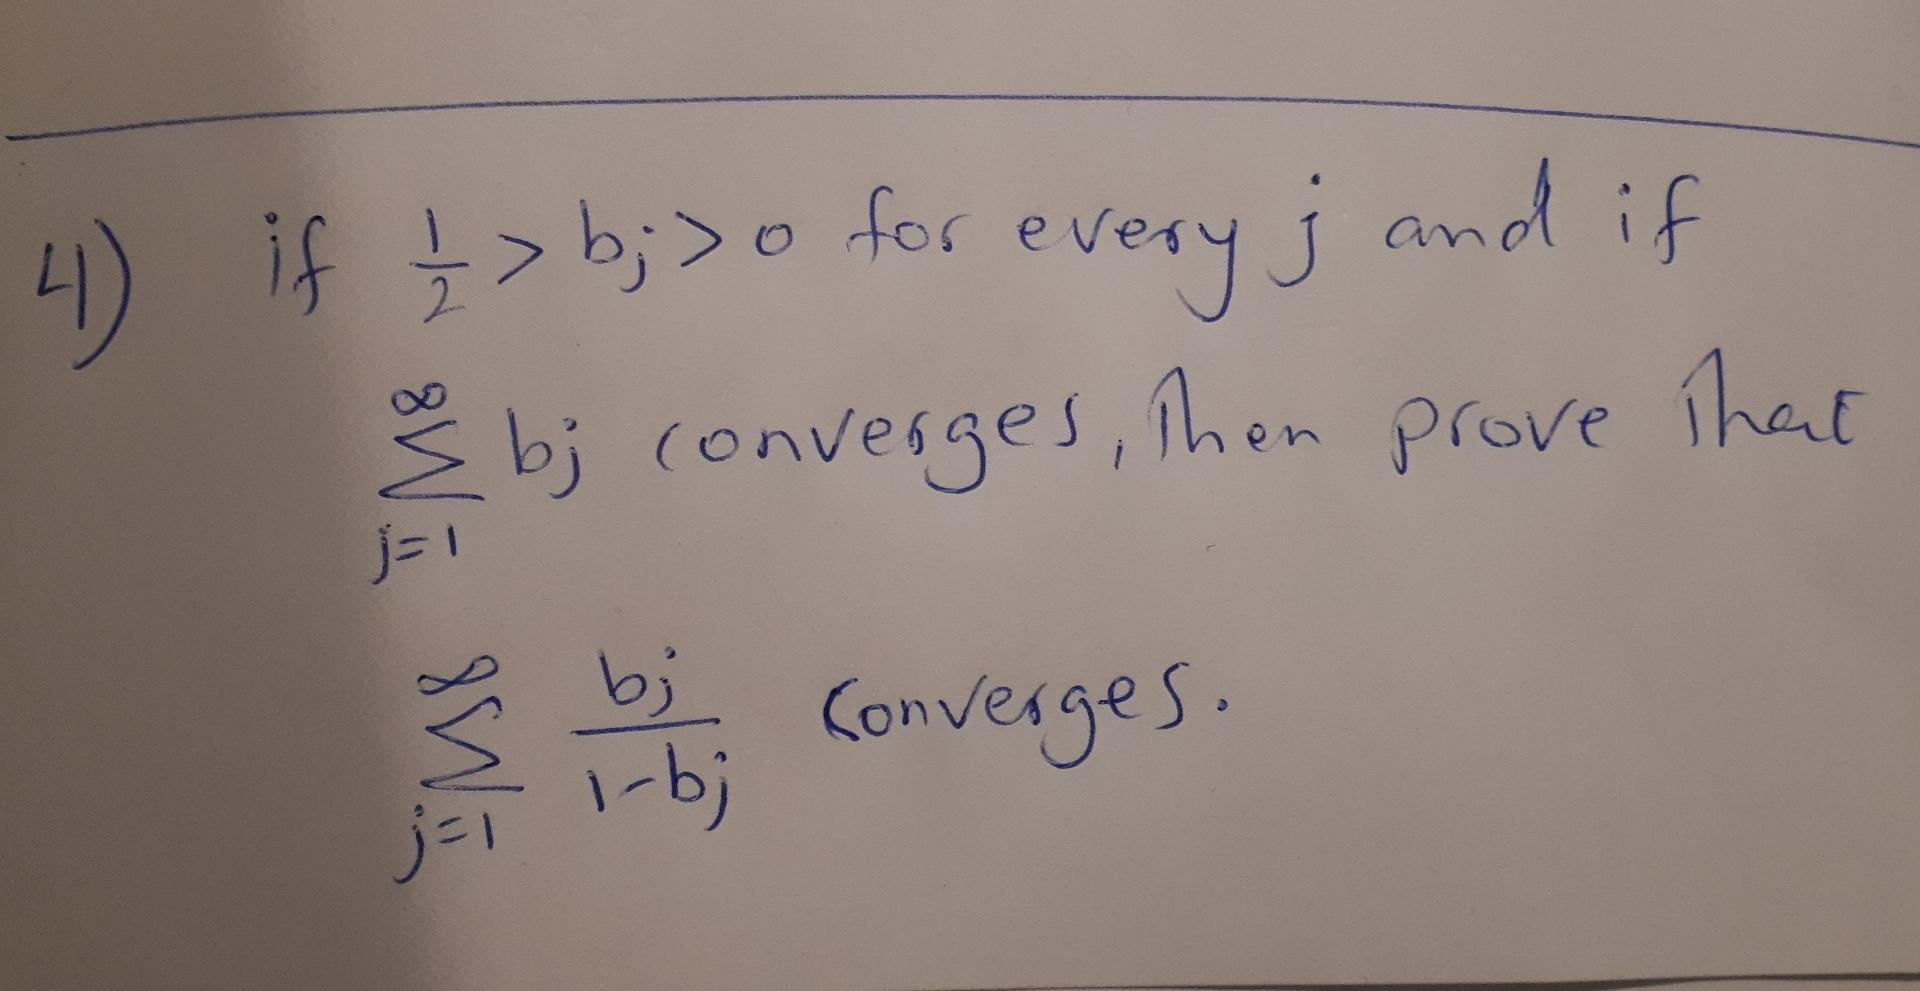 4) if 1/2 > bj > 0 for every j and if
∞ Σ j=1 bj converges, then prove that
∞ Σ j=1 bj/(1-bj) converges.